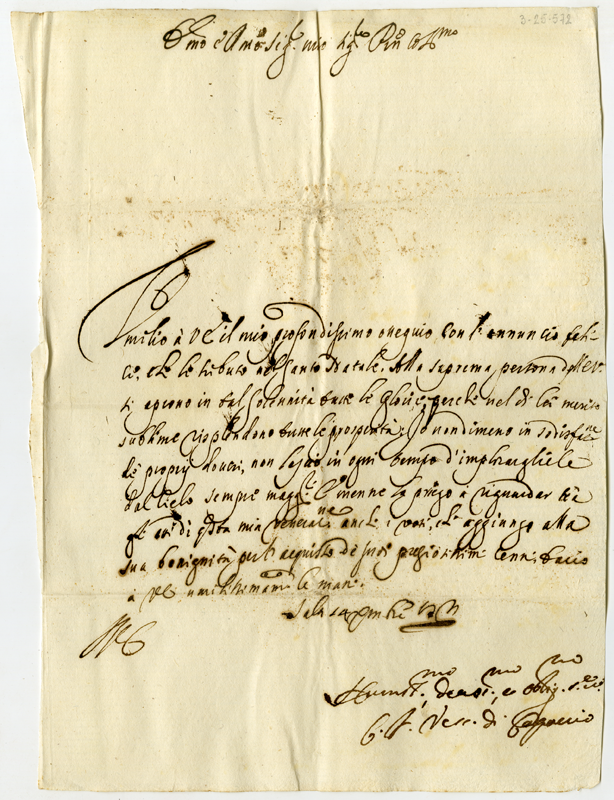 3-26-572
Em.o e Rmo Sig.r mio Sig.r Prõn Coll.mo
Umilio à VE il mio profondissimo ossequio con l'annuncio feli-
ce, che le tributo nel Santo Natale. Alla suprema persona dell'
in tal solennità tutte le glorie, perche nel di lei merito
sublime risplendono tutte le prosperità; Io nondimeno in sodisfaz.ne
de proprij doveri, non lascio in ogni tempo d'impetrargliele
dal Cielo sempre magg.ri E mentre la priego a riguardar
di q.sta mia anche i voti, ch'aggiungo alla
sua benignità per l'acquisto de suoi pregiatissimi cenni, bacio
à VE umilissimam.te le mani.
Sala 14 Xmbre
VE
Humil.mo devot.mo, e oblig.mo
Vesc. di